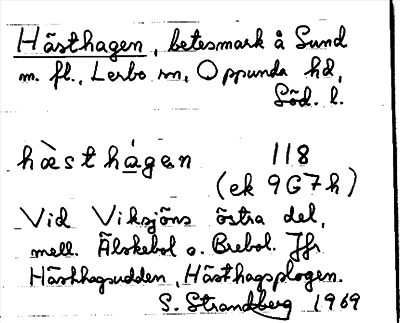 Hästhagen, betesmark å Sund
m. fl., Lerbo sn, Oppunda hd,
Söd. l.
hæ̀sthá̱gen 118
(ek 9G7h)
Vid Viksjöns östra del,
mell. Älskebol o. Brebol. Jfr
Hästhagsudden, Hästhagsplogen.
S. Strandberg 1969